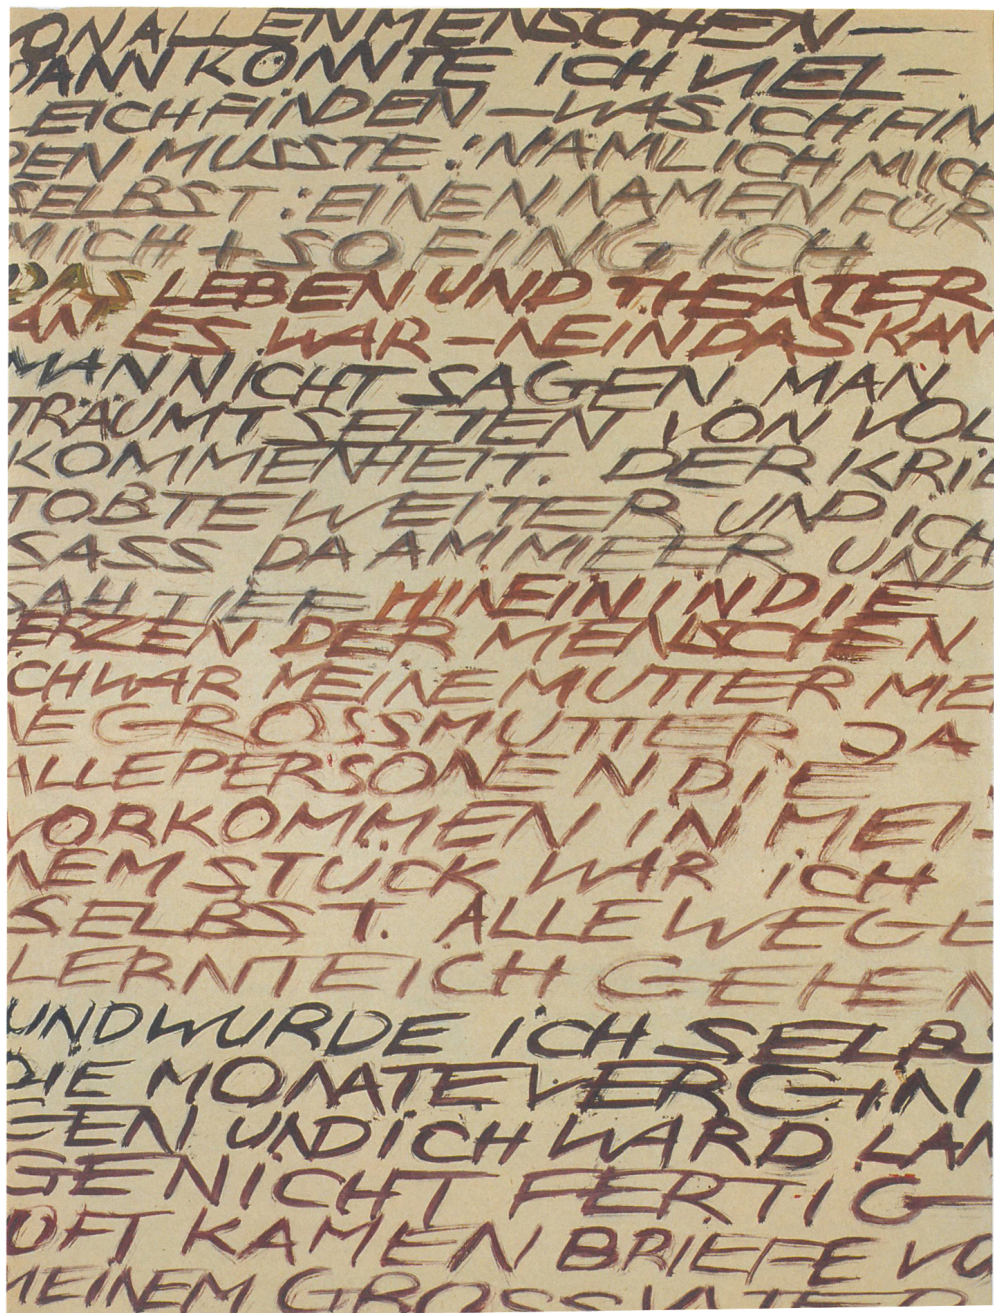 ONALLENMENSCHEN—
DANN KÖNNTE ICH VIEL-
LEICHFINDEN—WAS ICH FIN
DEN MUSSTE: NÄMLICH MICH
SELBST: EINEN NAMEN FÜR
MICH + SO FING ICH
DAS LEBEN UND THEATER
AN ES WAR—NEIN DAS KAN
MAN NICHT SAGEN MAN
TRÄUMT SELTEN VON VOL
KOMMENHEIT. DER KRIE
TOBTE WEITER UND ICH
SASS DA AM MEER UND
SAH TIEF HINEIN IN DIE
ERZEN DER MENSCHEN
ICH WAR MEINE MUTTER MEI
NE GROSSMUTTER JA
ALLE PERSONEN DIE
VORKOMMEN IN MEI-
NEM STÜCK WAR ICH
SELBST. ALLE WEGE
LERNTE ICH GEHEN
UND WURDE ICH SELB
DIE MONATE VERGIN
GEN UND ICH WARD LAN
GE NICHT FERTIG—
OFT KAMEN BRIEFE VO
MEINEM GROSSVATER